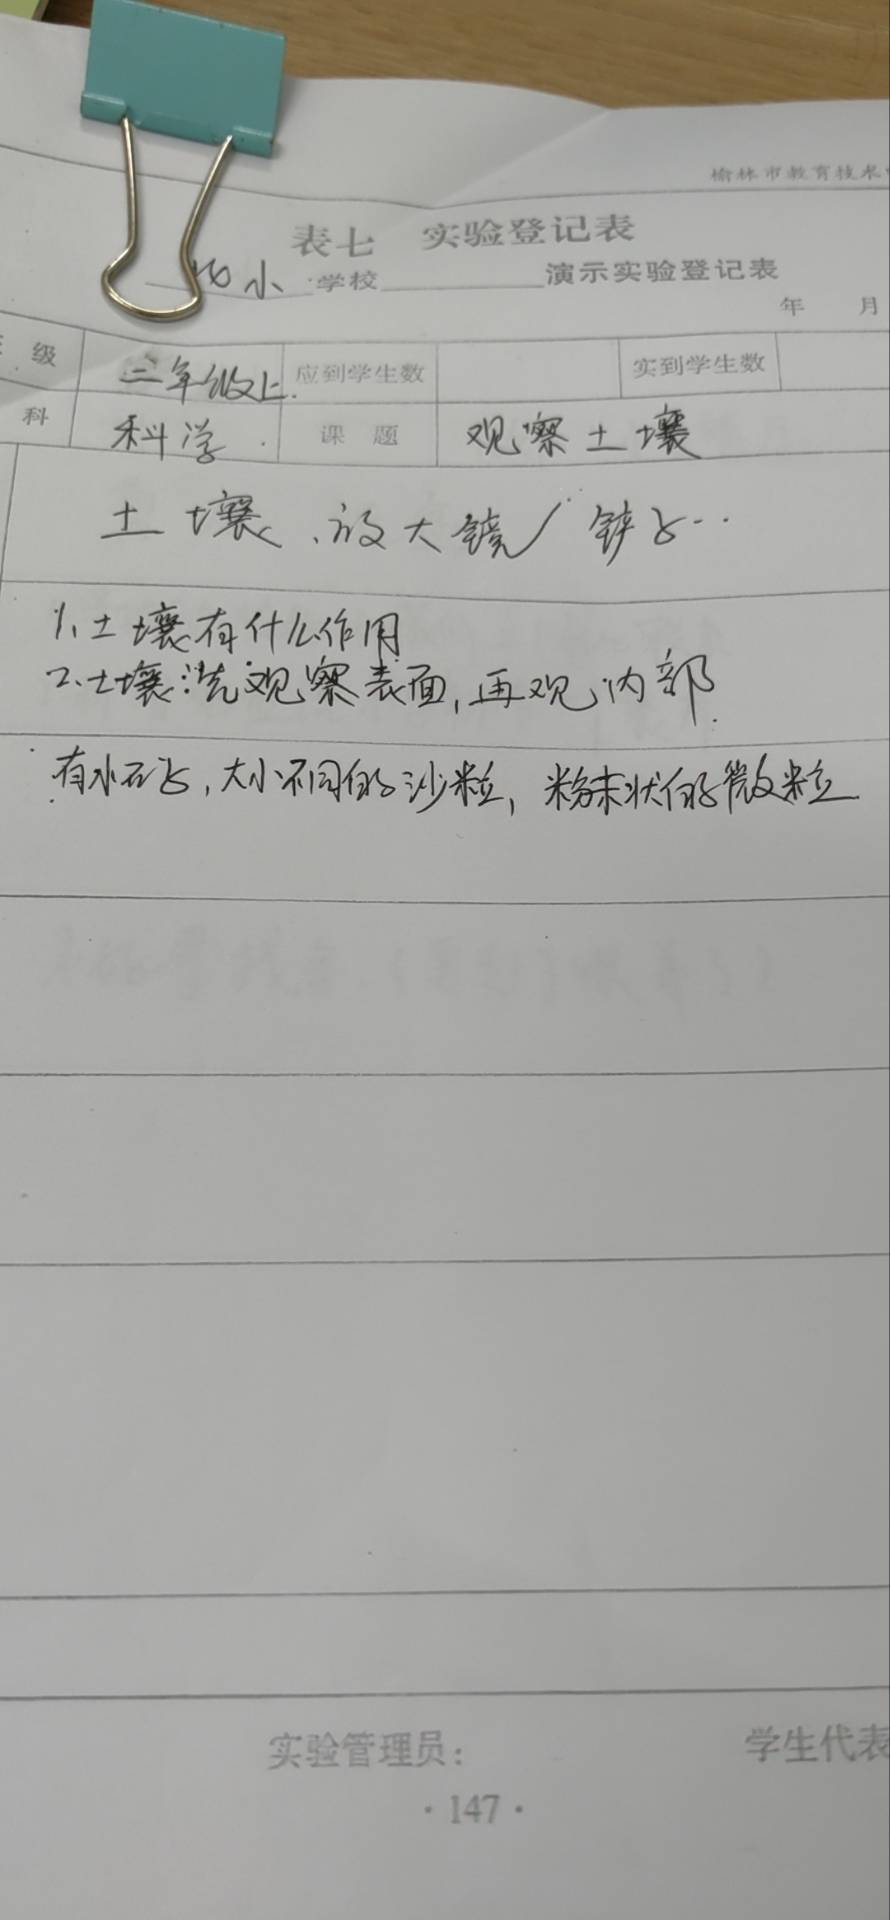 榆林市教育技术
表七 实验登记表
小 学校 演示实验登记表
年 月
级 三年级上. 应到学生数 实到学生数
科 科学 课题 观察土壤
土壤、放大镜 铲子…
1、土壤有什么作用
2、土壤:先观察表面,再观内部.
有小石子,大小不同的沙粒,粉末状的微粒
实验管理员: 学生代表
·147·